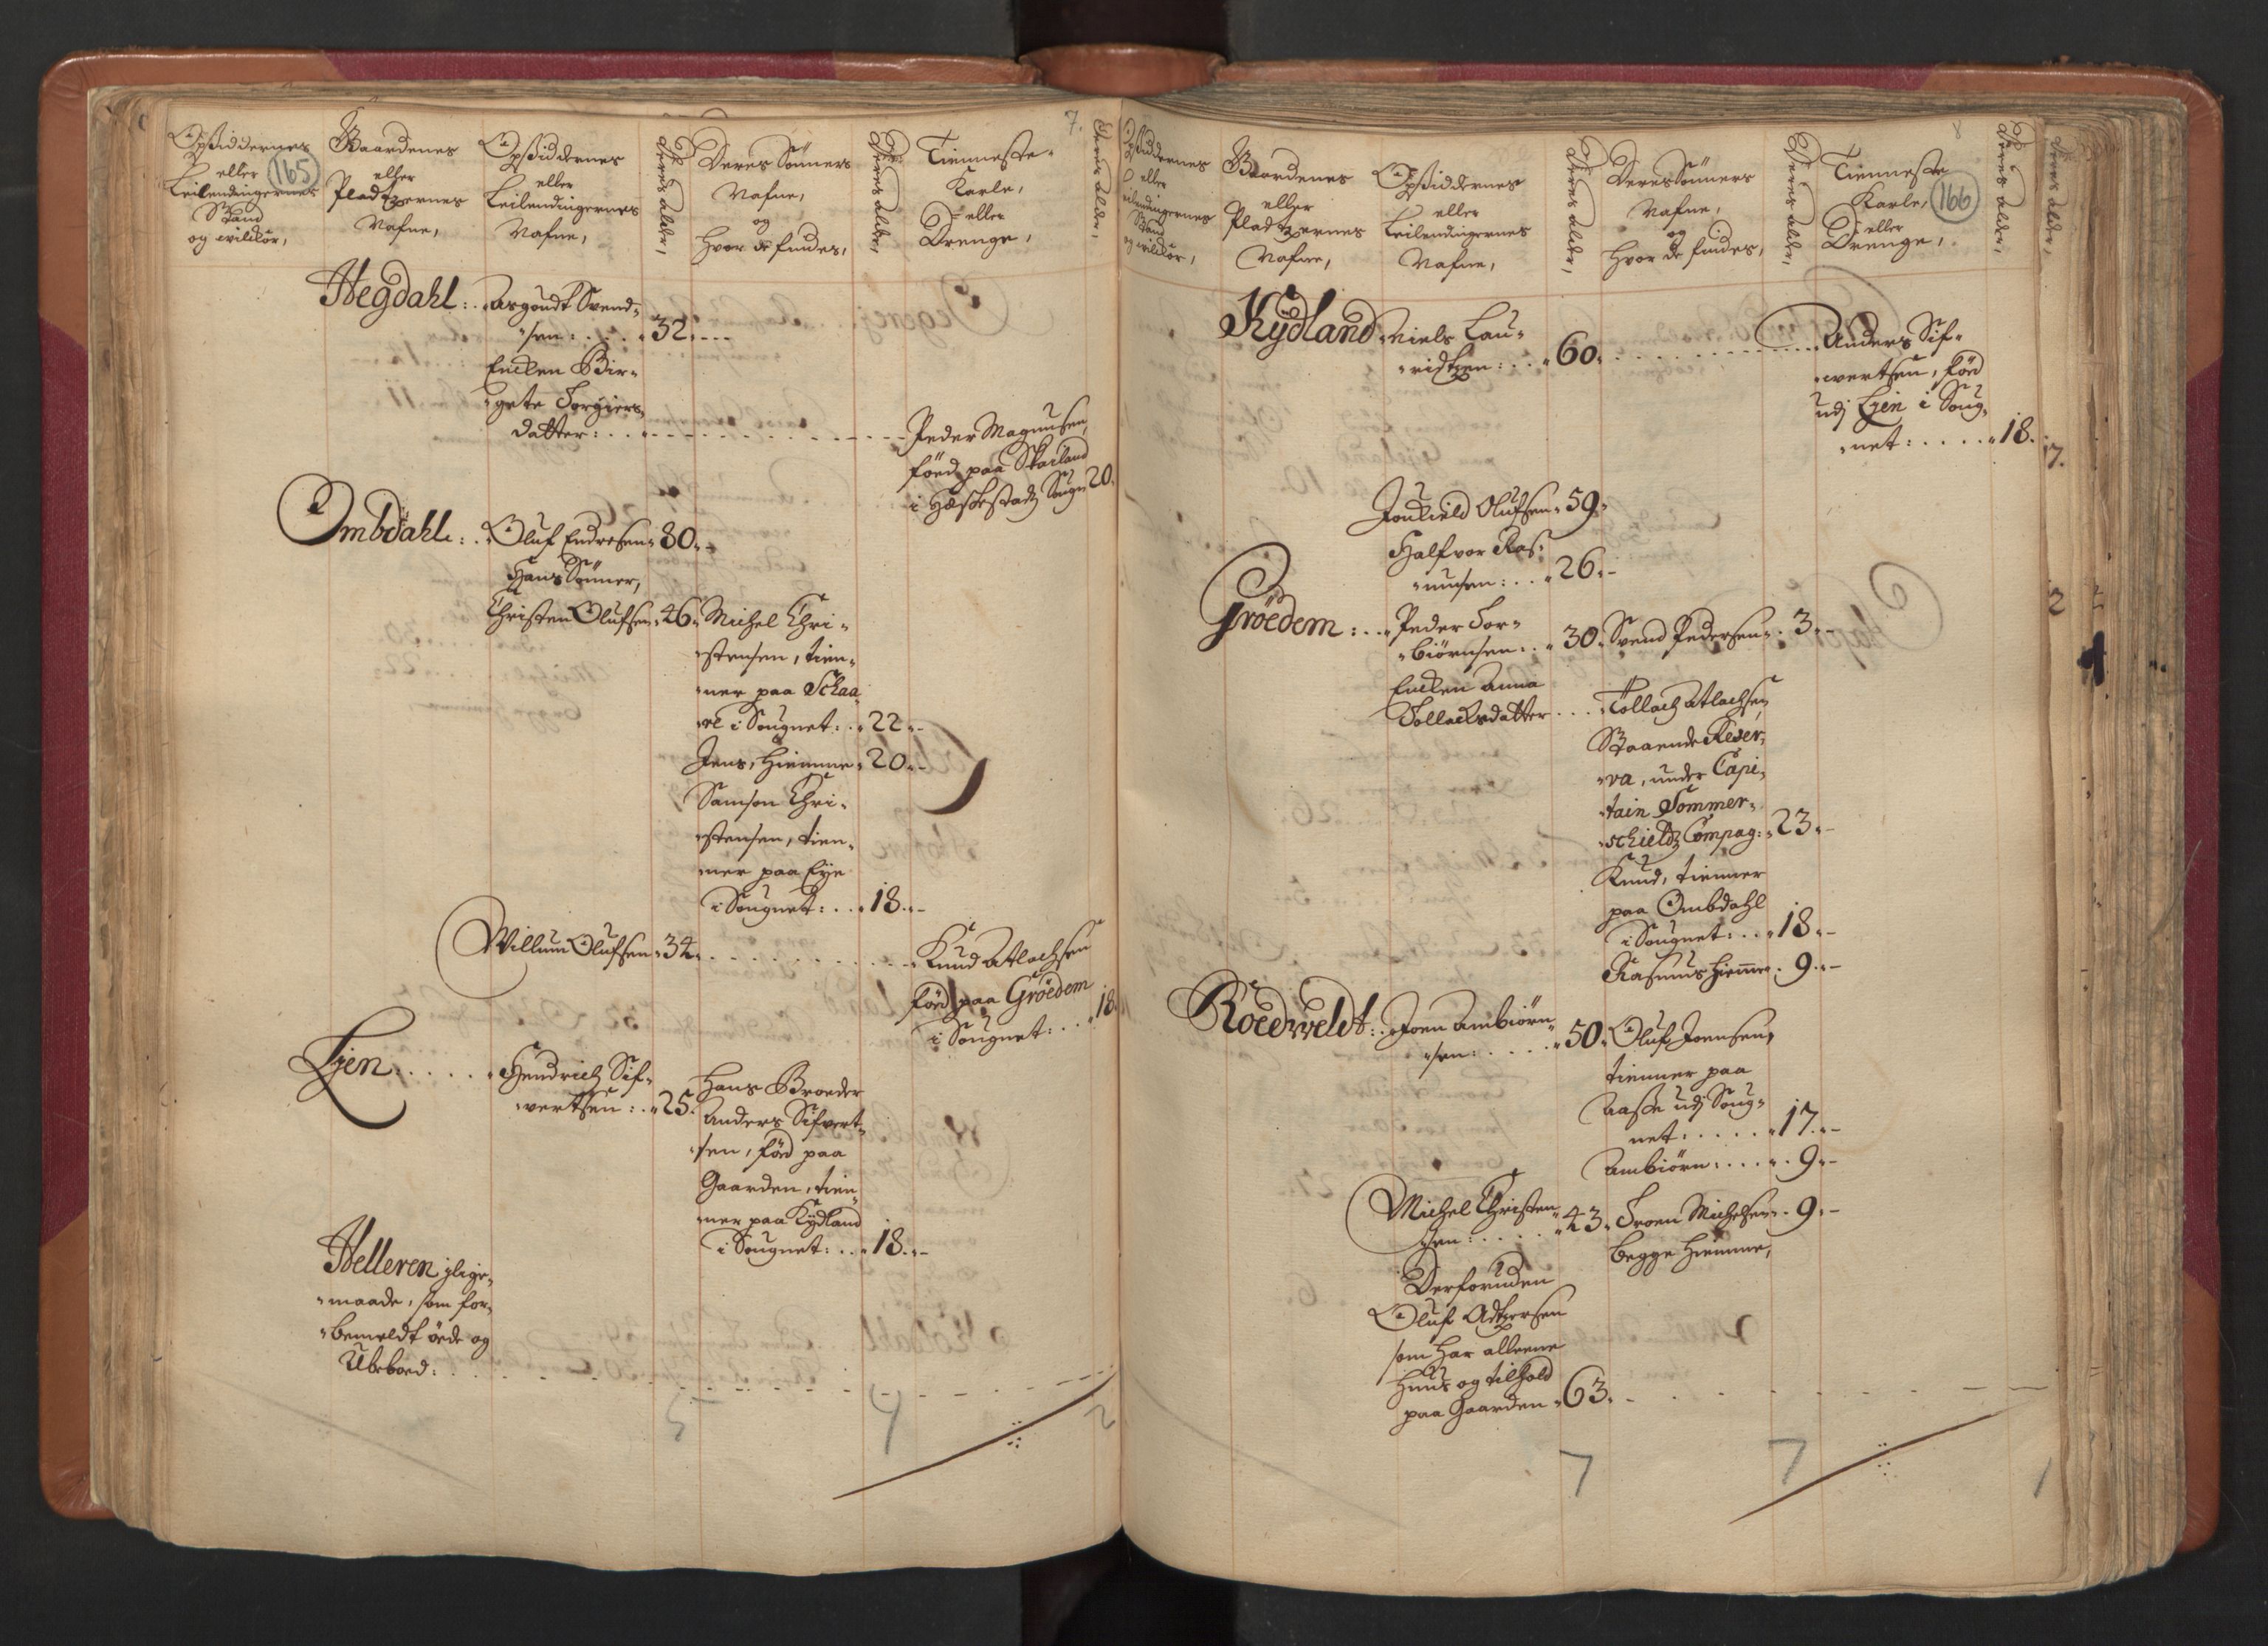 7.
165
Opsiddernes
eller
Leilendingernes
Stand
og vilckor,
Gaardenes
eller
Pladtzernes
Nafne,
Opsiddernes
eller
Leilendingernes
Nafne,
Deres alder,
Deres Sönners
Nafne,
og
hvor de findes,
Deres alder,
Tienneste-
Karle,
eller
Drenge,
Deres alder,
Hegdahl: Asgoudt Svend-
sen: . . . . 32.
Encken Bir-
gete Torgiers-
datter: . .
Peder Magnusen,
föed paa Skarland
i Hæskestads Sougn 20.
Ombdahl: Oluf Endresen 80.
Hans Sönner,
Christen Olufsen 46. Michel Chri-
stensen, tien-
ner paa Schaa-
re i Sougnet: . . 22.
Jens, hiemme 20.
Samson Chri-
stensen, tien-
ner paa Eye
i Sougnet: . . 18.
Willum Olufsen 34.
Knud Atlachsen
föed paa Gröedem
i Sougnet: . . 18
Lien: . . . . Hendrich Sif-
vertsen: . 25. Hans Broeder
Anders Sifvert-
sen, föed paa
Gaarden, tien-
ner paa Kydland
i Sougnet: . . 18.
Helleren ilige-
maade, som for-
bemeldt öede og
Ubeboed:
5 4 2
8
166
Opsiddernes
eller
Leilendingernes
Stand
og vilckor,
Gaardenes
eller
Pladtzernes
Nafne,
Opsiddernes
eller
Leilendingernes
Nafne,
Deres alder,
Deres Sönners
Nafne,
og
hvor de findes,
Deres alder,
Tienneste
Karle,
eller
Drenge,
Deres alder,
Kydland Niels Lau-
ridtzen: . . . 60.
Anders Sif-
vertsen, föed
udj Lien i Soug-
net: . . . . 18.
Olufsen 59.
Halfvor Ras-
musen: . . 26.
Gröedem: . . Peder Tor-
biörnsen: . . 30. Svend Pedersen . 3.
Encken Anna
Tollacksdatter . . . Tollach Atlachsen
Staaende Reser-
va, under Capi-
tain Sommer-
schieldtz Compag: 23.
Knud, tienner
paa Ombdahl
i Sougnet: . . 18.
Rasmus hiemme . 9.
Röedweldt: . Joen Ambiörn-
sen: . . . . 50. Oluf Joensen,
tienner paa
Aasse udj Soug-
net: . . . . . 17.
Ambiörn: . . . . 9.
Michel Christen-
sen: . . . . . 43. Troen Michelsen . 9.
begge hiemme,
Derforuden
Oluf Adtzersen
som har alleene
huus og tilhold
paa Gaarden 63.
7 7 1